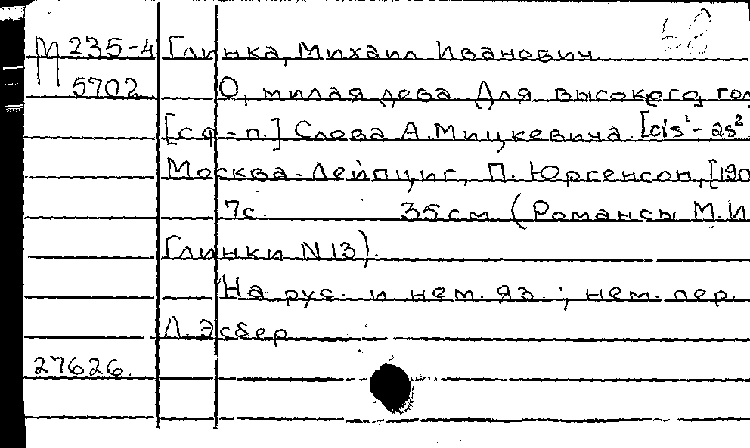 68
М 235-4 Глинка, Михаил Иванович
5702 О, милая дева. Для высокого гол
[с ф-п.] Слова А. Мицкевича. [cis¹-as²
Москва-Лейпциг, П. Юргенсон, [190
7с. 35см. (Романсы М.И.
Глинки N 13).
На рус. и нем. яз.; нем. пер.
Л. Эсбер
27626.